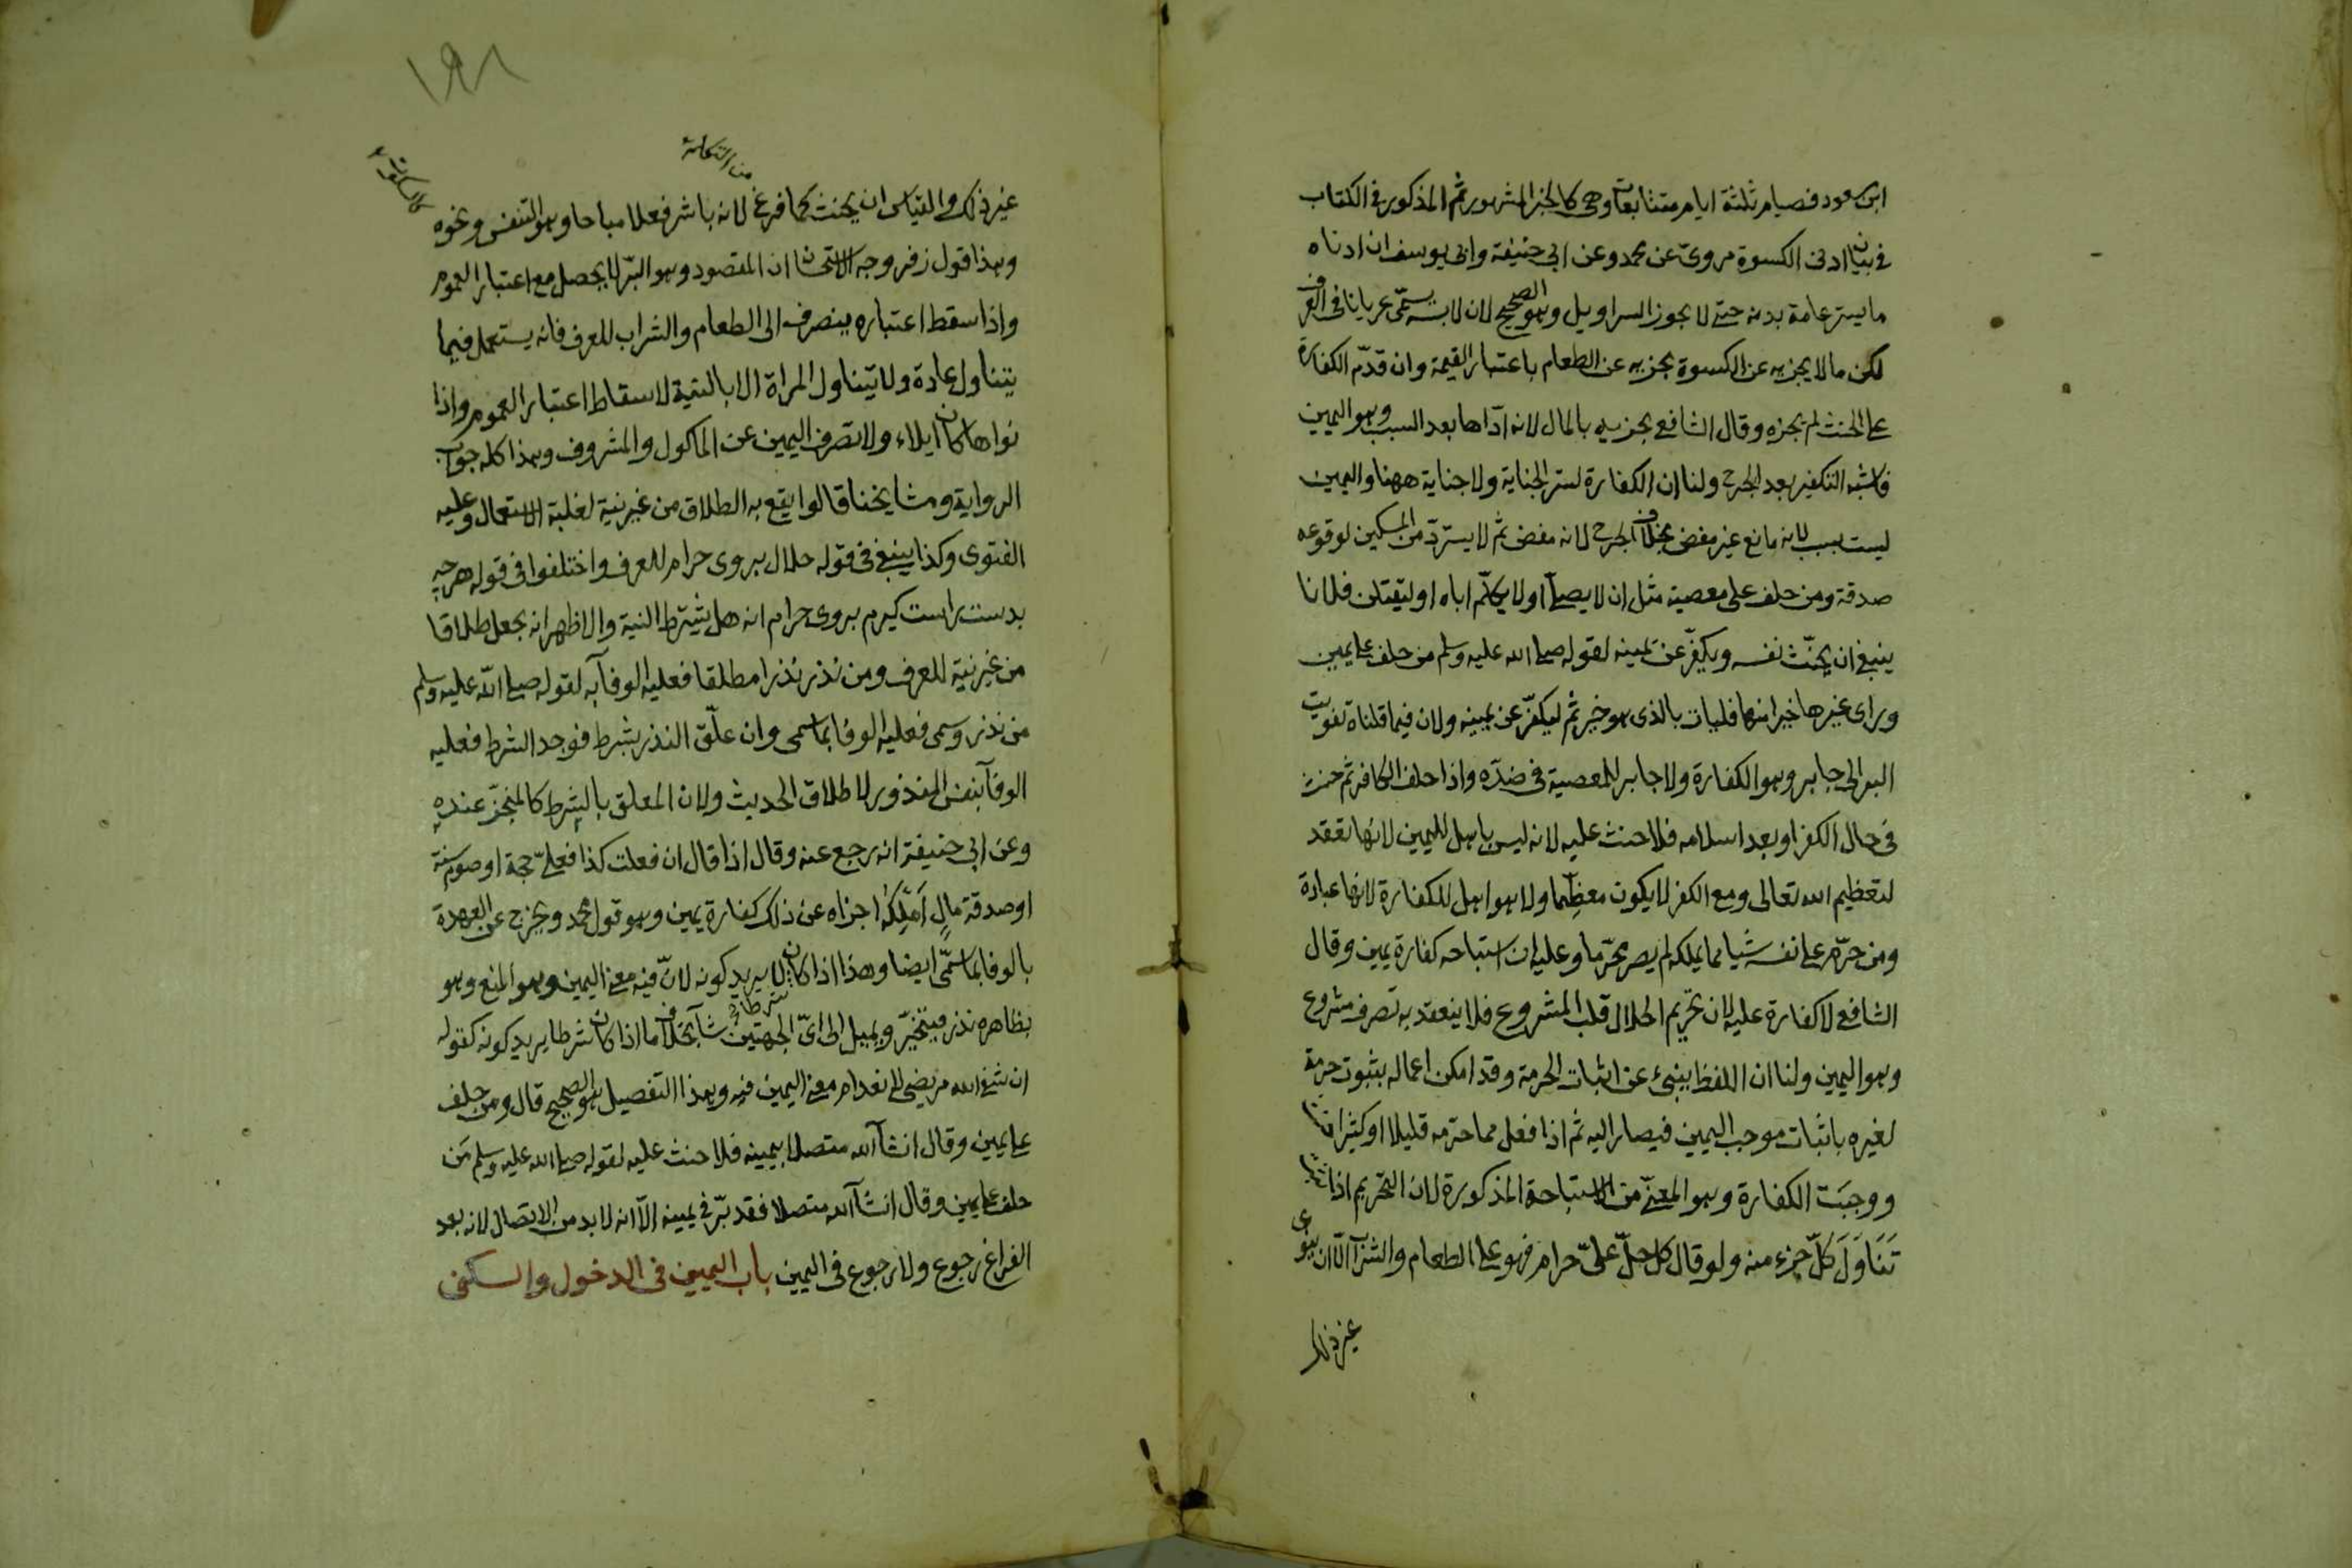 ابن مسعود فصيام ثلثة ايام متتابعات وهى كالخبر المشهور ثم المذكور فى الكتاب
فى بيان ادنى الكسوة مروىّ عن محمد وعن ابى حنيفة وابى يوسف ان ادناه
ما يستر عامة بدنه حتى لا يجوز السراويل وهو الصحيح لان لابسه يسمّى عريانا فى العرف
لكن ما لا يجزيه عن الكسوة يجزيه عن الطعام باعتبار القيمة وان قدّم الكفارة
على الحنث لم يجزه وقال الشافعى يجزيه بالمال لانه ادّاها بعد السبب وهو اليمين
فاشبه التكفير بعد الجرح ولنا ان الكفارة لستر الجناية ولا جناية ههنا واليمين
ليست بسبب لانه مانع غير مفض بخلاف الجرح لانه مفض ثم لا يستردّ من المسكين لوقوعه
صدقة ومن حلف على معصية مثل ان لا يصلى او لا يكلّم اباه او ليقتلن فلانا
ينبغى ان يحنّث نفسه ويكفّر عن يمينه لقوله صلى الله عليه وسلم من حلف على يمين
وراى غيرها خيرا منها فليات بالذى هو خير ثم ليكفّر عن يمينه ولان فيما قلناه تفويت
البر الى جابر وهو الكفارة ولا جابر للمعصية فى ضدّه واذا حلف الكافر ثم حنث
فى حال الكفر او بعد اسلامه فلا حنث عليه لانه ليس باهل لليمين لانها تعقد
لتعظيم الله تعالى ومع الكفر لا يكون معظّما ولا هو اهل للكفارة لانها عبادة
ومن حرّم على نفسه شيا مما يملكه لم يصر محرّما وعليه ان استباحه كفارة يمين وقال
الشافعى لا كفارة عليه لان تحريم الحلال قلب المشروع فلا ينعقد به تصرف مشروع
وهو اليمين ولنا ان اللفظ ينبئ عن اثبات الحرمة وقد امكن اعماله بثبوت حرمة
لغيره باثبات موجب اليمين فيصار اليه ثم اذا فعل مما حرّمه قليلا او كثيرا حنث
ووجبت الكفارة وهو المعنىّ من الاستباحة المذكورة لان التحريم اذا ثبت
تَنَاوَلَ كلّ جزء منه ولو قال كل حلّ علىّ حرام فهو على الطعام والشراب الّا ان ينوى
غير ذلك
١٩٨
غير ذلك والقياس ان يحنث كما فرغ لانه باشر فعلا مباحا وهو التنفس ونحوه
وهذا قول زفر وجه الاستحسان ان المقصود وهو البرّ لا يحصل مع اعتبار العموم
واذا سقط اعتباره ينصرف الى الطعام والشراب للعرف فانه يستعمل فيما
يتناول عادة ولا يتناول المراة الا بالنية لاسقاط اعتبار العموم واذا
نواها كان ايلاء ولا تصرف اليمين عن الماكول والمشروف وهذا كله جواب
الرواية ومشايخنا قالوا يقع به الطلاق من غير نية لغلبة الاستعمال وعليه
الفتوى وكذا ينبغى فى قوله حلال بروى حرام للعرف واختلفوا فى قوله هرچه
بدست راست كيرم بروى حرام انه هل يشترط النية والاظهر انه يجعل طلاقا
من غير نية للعرف ومن نذر نذرا مطلقا فعليه الوفآء به لقوله صلى الله عليه وسلم
من نذر وسمى فعليه الوفا بما سمى وان علّق النذر بشرط فوجد الشرط فعليه
الوفآ بنفس المنذور لاطلاق الحديث ولان المعلق بالشرط كالمنجّز عنده
وعن ابى حنيفة انه رجع عنه وقال اذا قال ان فعلت كذا فعلىّ حجة او صوم سنة
او صدقة مالٍ اَملِكُه اجزاه عن ذلك كفارة يمين وهو قول محمد ويخرج عن العهدة
بالوفا بما سمّى ايضا وهذا اذا كان شرطا لا يريد كونه لانّ فيه معنى اليمين وهو المنع وهو
بظاهره نذر فيتخيّر ويميل الى اىّ الجهتين شآء بخلاف ما اذا كان شرطا يريد كونه كقوله
ان شفى الله مريضى لانعدام معنى اليمين فيه وهذا التفصيل هو الصحيح قال ومن حلف
على يمين وقال ان شآ الله متصلا بيمينه فلا حنث عليه لقوله صلى الله عليه وسلم مَن
حلف على يمين وقال ان شآ الله متصلا فقد برّ فى يمينه الّا انه لا بد من الاتصال لانه بعد
الفراغ رجوع ولا رجوع فى اليمين باب اليمين فى الدخول والسكنى